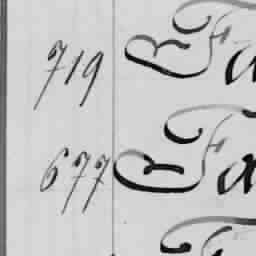 719 Fa
677 Fa